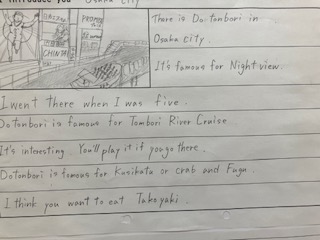 I introduce you Osaka city
PROMIS
CHINTAI
There is Dotonbori in
Osaka city.
It's famous for Night view.
I went there when I was five.
Dotonbori is famous for Tombori River Cruise
It's interesting. You'll play it if you go there.
Dotonbori is famous for Kusikatu or crab and Fugu.
I think you want to eat Takoyaki.